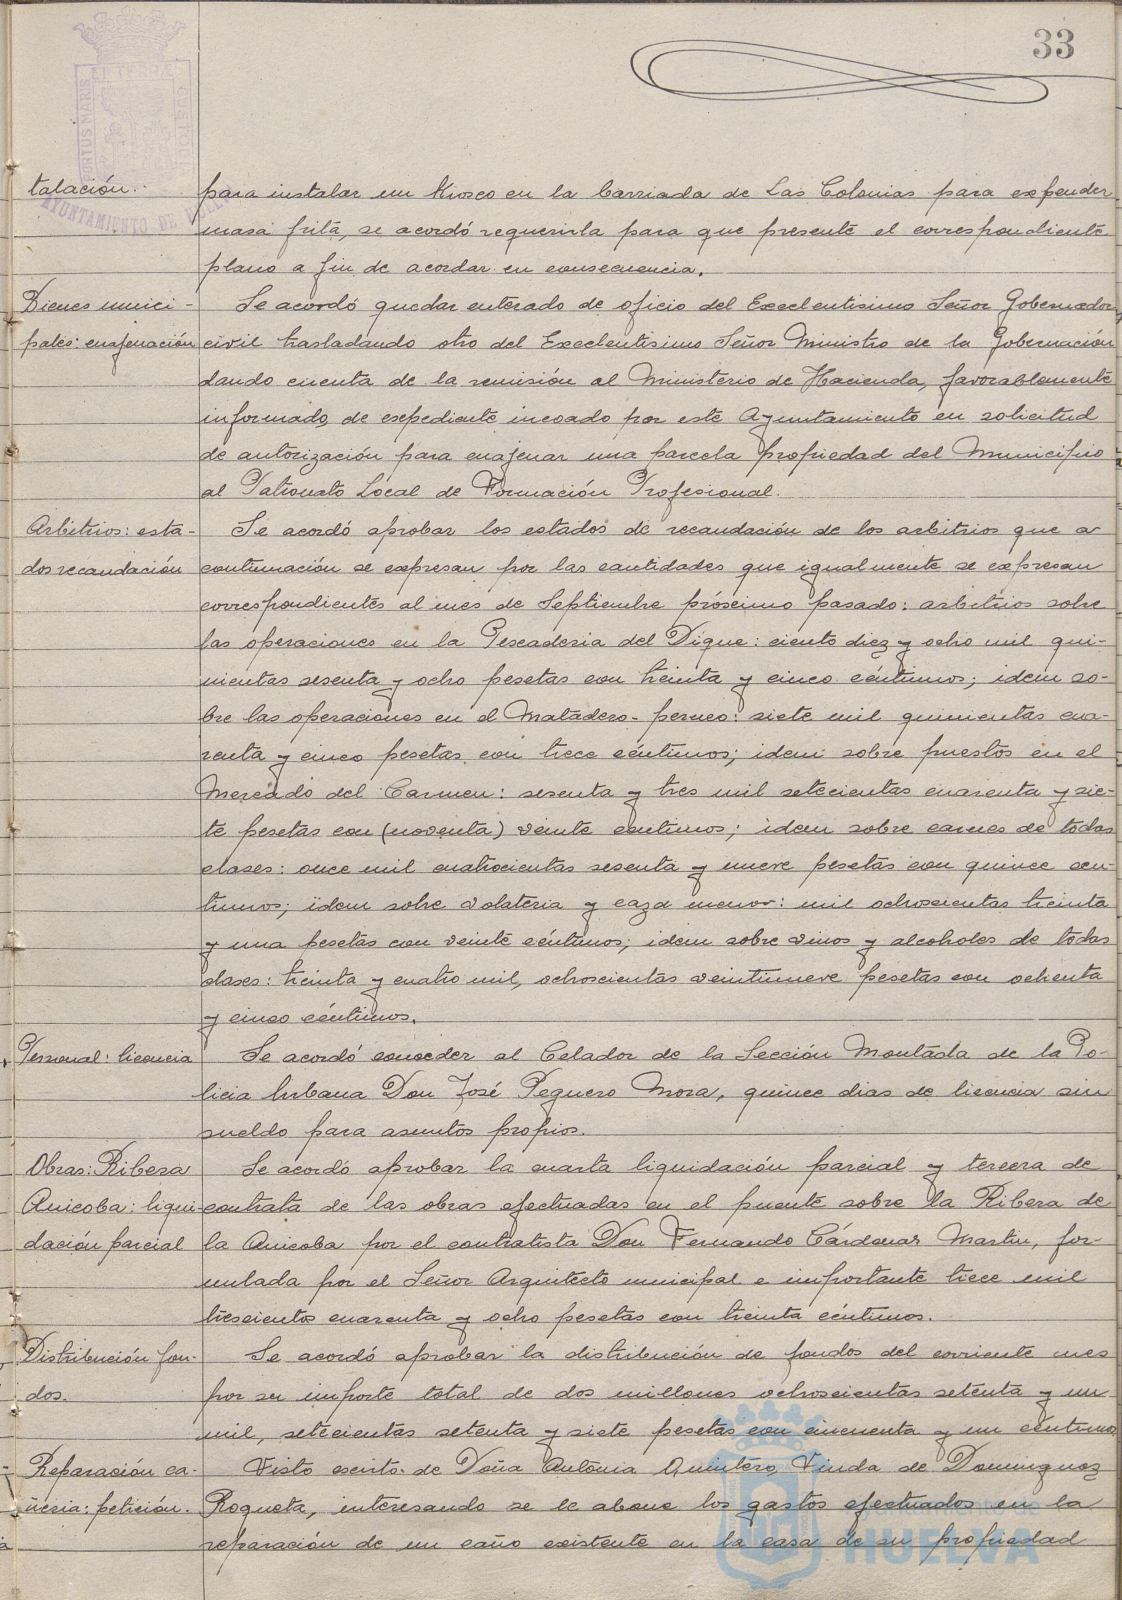 33
talación.. para instalar un Kiosco en la barriada de Las Colonias para expender
masa frita, se acordó requerirla para que presente el correspondiente
plano a fin de acordar en consecuencia.
Bienes munici- Se acordó quedar enterado de oficio del Excelentisimo Señor Gobernador
pales: enajenación civil trasladando otro del Excelentisimo Señor Ministro de la Gobernación
dando cuenta de la remisión al Ministerio de Hacienda, favorablemente
informado, de expediente incoado por este Ayuntamiento en solicitud
de autorización para enajenar una parcela propiedad del Municipio
al Patronato Local de Formación Profesional.
Arbitrios: esta- Se acordó aprobar los estados de recaudación de los arbitrios que a
dos recaudación continuación se expresan por las cantidades que igualmente se expresan
correspondientes al mes de Septiembre próximo pasado: arbitrios sobre
las operaciones en la Pescaderia del Dique: ciento diez y ocho mil qui-
nientas sesenta y ocho pesetas con treinta y cinco céntimos; idem so-
bre las operaciones en el Matadero-perneo: siete mil quinientas cua-
renta y cinco pesetas con trece céntimos; idem sobre puestos en el
Mercado del Carmen: sesenta y tres mil setecientas cuarenta y sie-
te pesetas con (noventa) veinte centimos; idem sobre carnes de todas
clases: once mil cuatrocientas sesenta y nueve pesetas con quince cen-
timos; idem sobre volateria y caza menor: mil ochoscientas treinta
y una pesetas con veinte céntimos; idem sobre vinos y alcoholes de todas
clases: treinta y cuatro mil, ochoscientas veintinueve pesetas con ochenta
y cinco céntimos.
Personal: licencia Se acordó conceder al Celador de la Sección Montada de la Po-
licia Urbana Don José Peguero Mora, quince dias de licencia sin
sueldo para asuntos propios.
Obras: Ribera Se acordó aprobar la cuarta liquidación parcial y tercera de
Anicoba: liqui- contrata de las obras efectuadas en el puente sobre la Ribera de
dación parcial la Anicoba por el contratista Don Fernando Cárdenas Martin, for-
mulada por el Señor Arquitecto municipal e importante trece mil
trescientos cuarenta y ocho pesetas con treinta céntimos.
Distribución fon- Se acordó aprobar la distribución de fondos del corriente mes
dos. por su importe total de dos millones ochoscientas setenta y un
mil, setecientas setenta y siete pesetas con cincuenta y un céntimos
Reparación ca- Visto escrito de Doña Antonia Quintero, Viuda de Dominguez
ñeria: petición. Roqueta, interesando se le abone los gastos efectuados en la
reparación de un caño existente en la casa de su propiedad
Ayuntamiento de
HUELVA